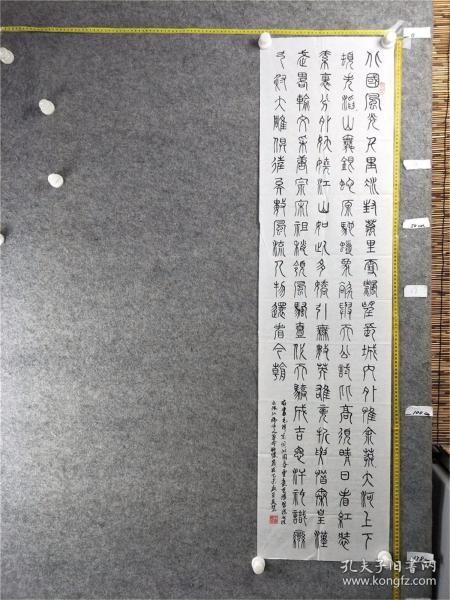 北國風光千里冰封萬里雪飄望長城內外惟餘莽大河上下
頓失滔山舞銀蛇原馳蠟象欲與天公試比高須晴日看紅裝
素裹分外妖嬈江山如此多嬌引無數英雄競折腰惜秦皇漢
武略輸文采唐宗宋祖稍領風騷壹代天驕成吉思汗祇識彎
弓射大雕俱往矣數風流人物還看今朝
0
50cm
100cm
孔夫子旧书网
www.kongfz.com